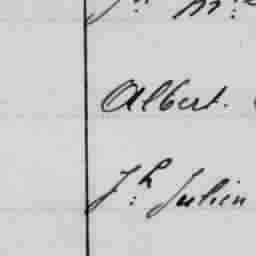 Albert.
Jh: Julien